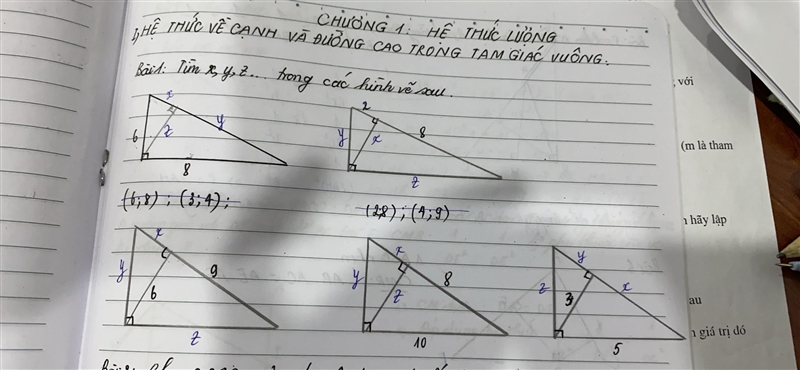 CHƯƠNG 1: HỆ THỨC LƯỢNG
1, HỆ THỨC VỀ CẠNH VÀ ĐƯỜNG CAO TRONG TAM GIÁC VUÔNG.
Bài 1: Tìm x, y, z... trong các hình vẽ sau.
, với
x
2
6 z y
y x 8
(m là tham
8
z
(6;8) ; (3;4) ;
(2;8) ; (4;9)
hãy lập
x
x
y
y 6 9
y z 8
z 3 x
au
z
10
5
giá trị đó